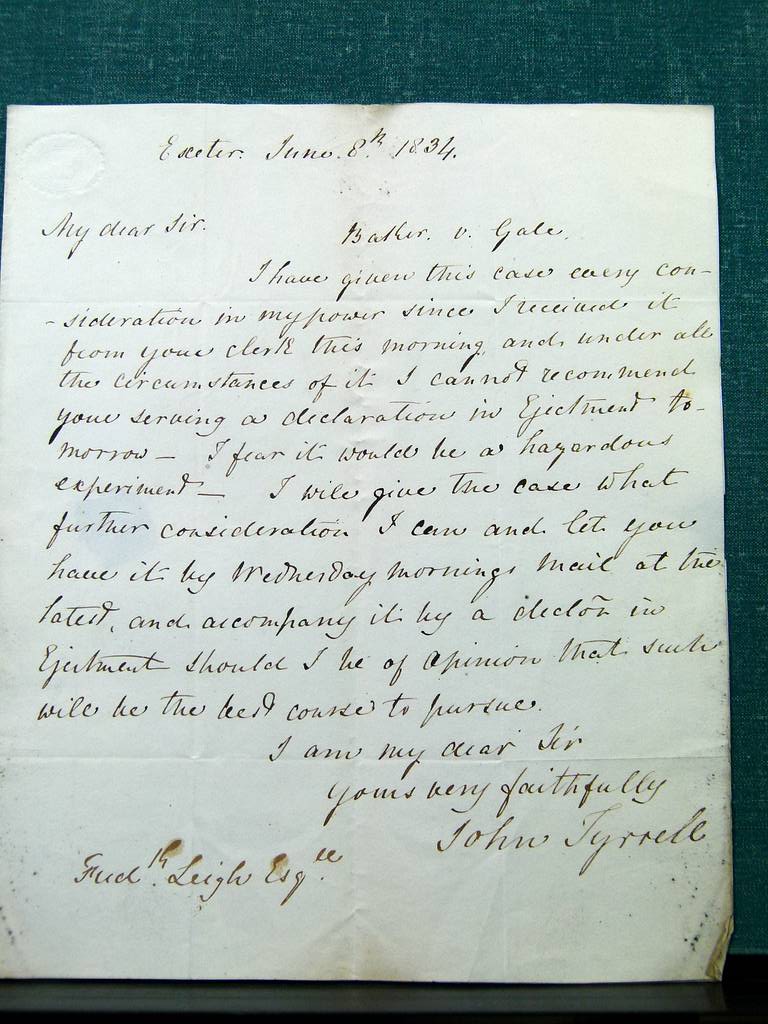 Exeter. June. 8th. 1834.
My dear Sir.
Baker. v. Gale.
I have given this case every con-
-sideration in my power since I received it
from your clerk this morning, and under all
the circumstances of it I cannot recommend
your serving a declaration in Ejectment to-
morrow - I fear it would be a hazardous
experiment - I will give the case what
further consideration I can and let you
have it by Wednesday mornings Mail at the
latest, and accompany it by a declon in
Ejectment should I be of opinion that such
will be the best course to pursue.
I am my dear Sir
Yours very faithfully
John Tyrrell
Fredk. Leigh Esqre.